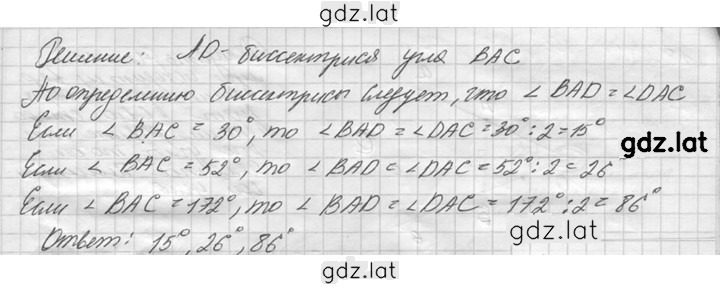 gdz.lat
Решение: AD - биссектриса угла BAC
По определению биссектрисы следует, что ∠ BAD = ∠DAC
Если ∠ BAC = 30°, то ∠BAD = ∠DAC = 30° : 2 = 15°
gdz.lat
Если ∠ BAC = 52°, то ∠ BAD = ∠DAC = 52° : 2 = 26°
Если ∠ BAC = 172°, то ∠ BAD = ∠DAC = 172° : 2 = 86°
Ответ: 15°, 26°, 86°
gdz.lat
gdz.lat